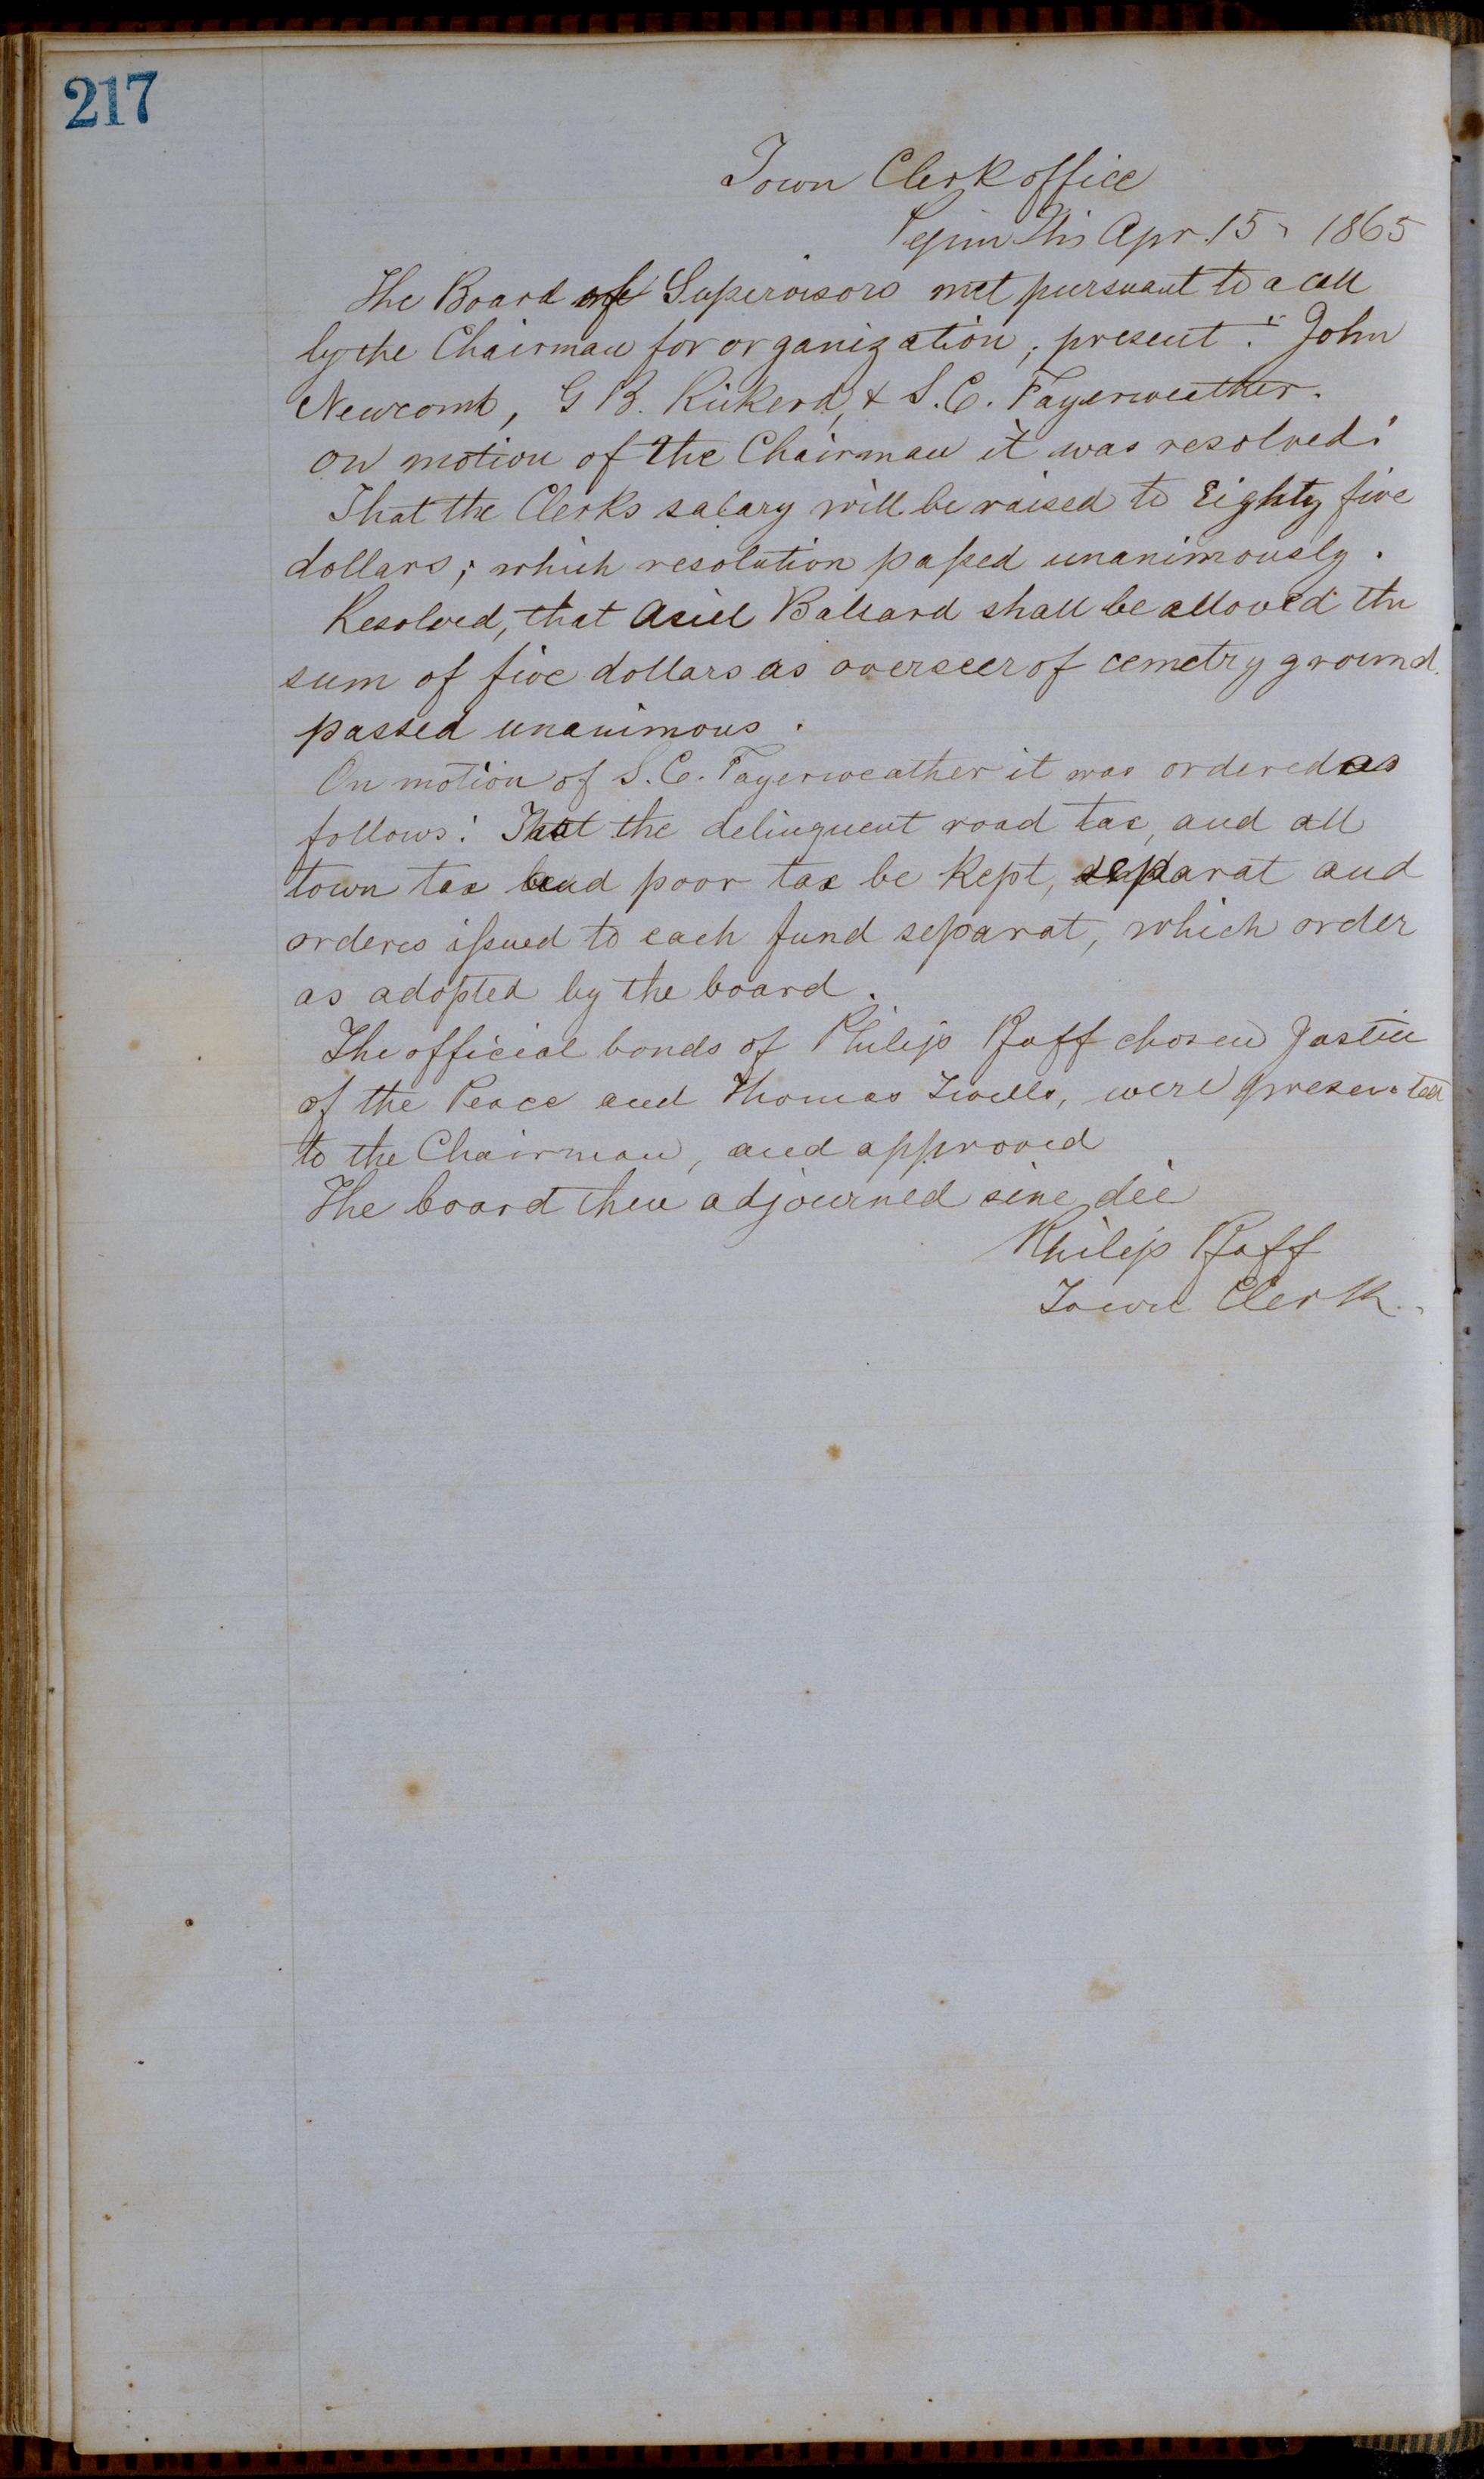 217
Town Clerk office
Pepin Wis Apr. 15, 1865
The Board of Supervisors met pursuant to a call
by the Chairman for organization; present: John
Newcomb, G B. Rickerd, & S. C. Fayerweather.
on motion of the Chairman it was resolved:
That the Clerks salary will be raised to Eighty five
dollars; which resolution passed unanimously.
Resolved, that Asiel Ballard shall be allowed the
sum of five dollars as overseer of cemetry ground.
passed unanimous.
On motion of S. C. Fayerweather it was ordered as
follows: That the delinquent road tax, and all
town tax and poor tax be kept, separat and
orderes issued to each fund separat, which order
as adopted by the board.
The official bonds of Philip Pfaff chosen Justice
of the Peace and Thomas, were presented
to the Chairman, and approved
The board then adjourned sine die
Philip Pfaff
Town Clerk.